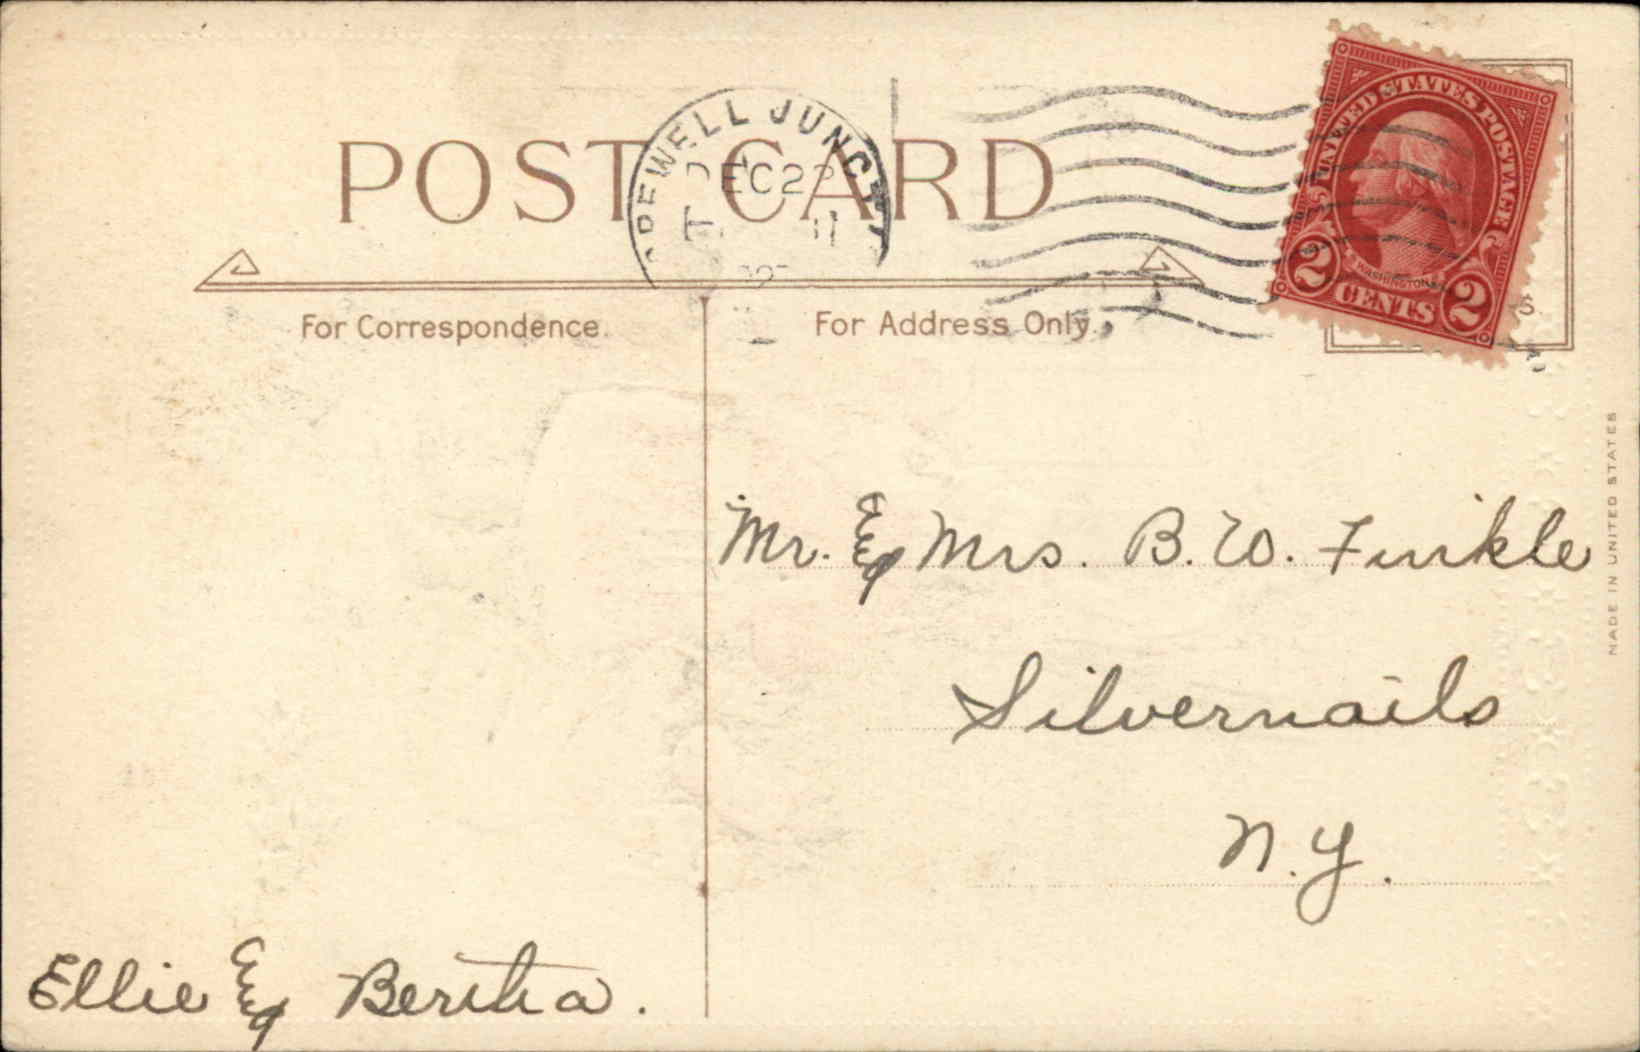 POST CARD
DEC 22
For Correspondence.
For Address Only.
UNITED STATES POSTAGE
WASHINGTON
2 CENTS 2
MADE IN UNITED STATES
Mr. & Mrs. B. W. Finkle
Silvernails
N.Y.
Ellie & Bertha.